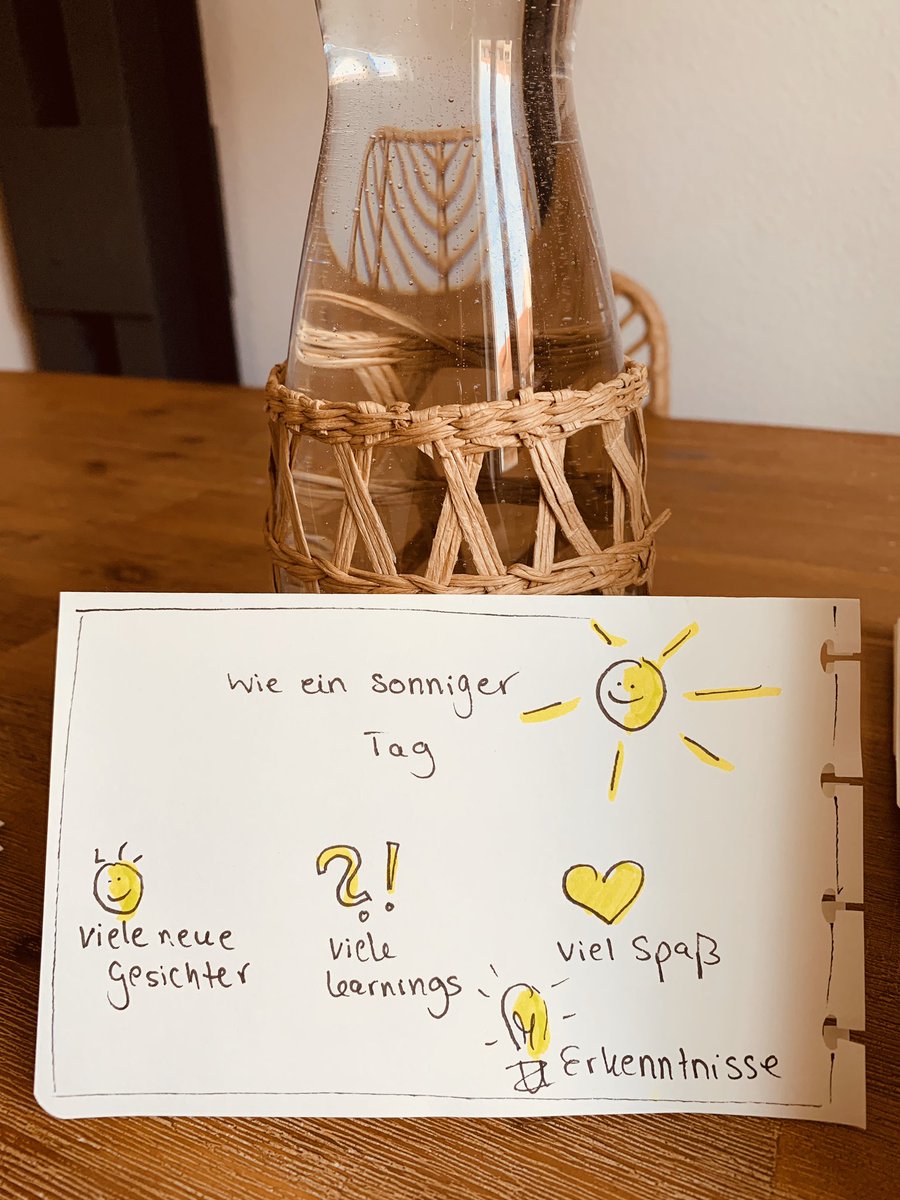 Wie ein sonniger
Tag
viele neue
Gesichter
?!
viele
learnings
viel Spaß
Erkenntnisse